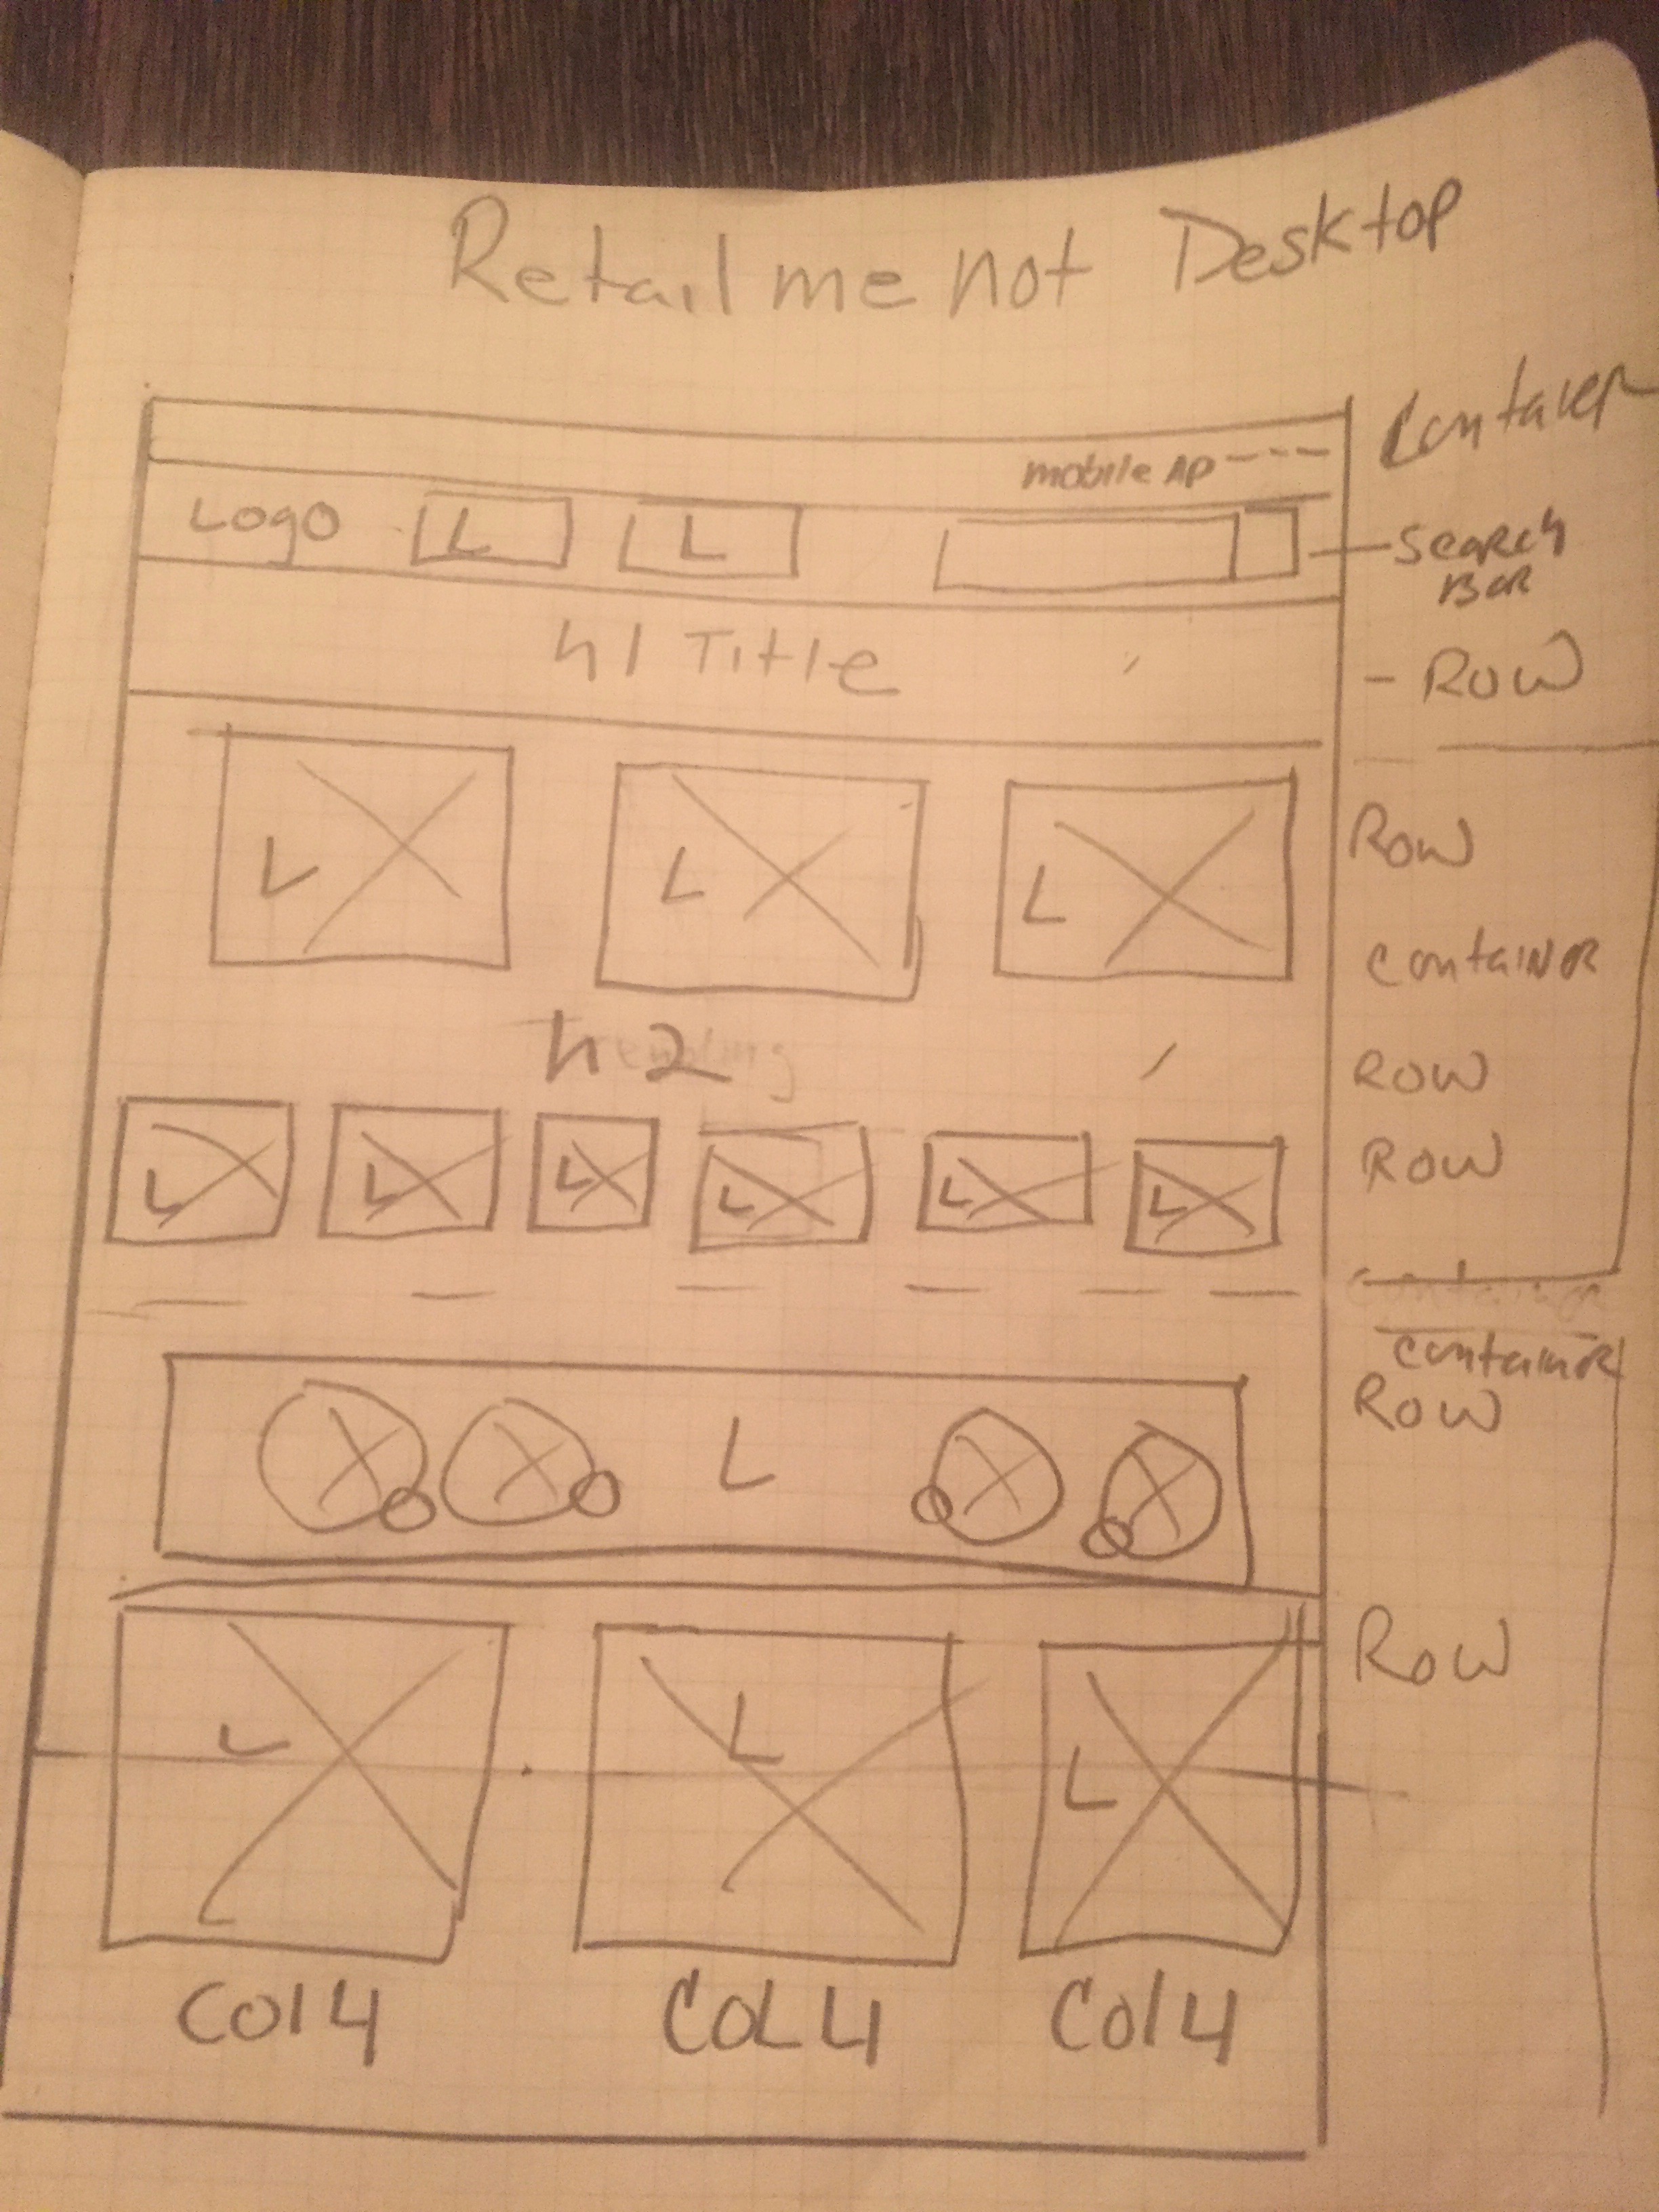 Retail me not Desktop
Container
mobile AP ---
Logo L L
Search
Bar
h1 Title
- Row
L L L
Row
containor
h2
Trending
Row
L L L L L L
Row
containor
containor
L
Row
L L L
Row
Col 4 Col 4 Col 4